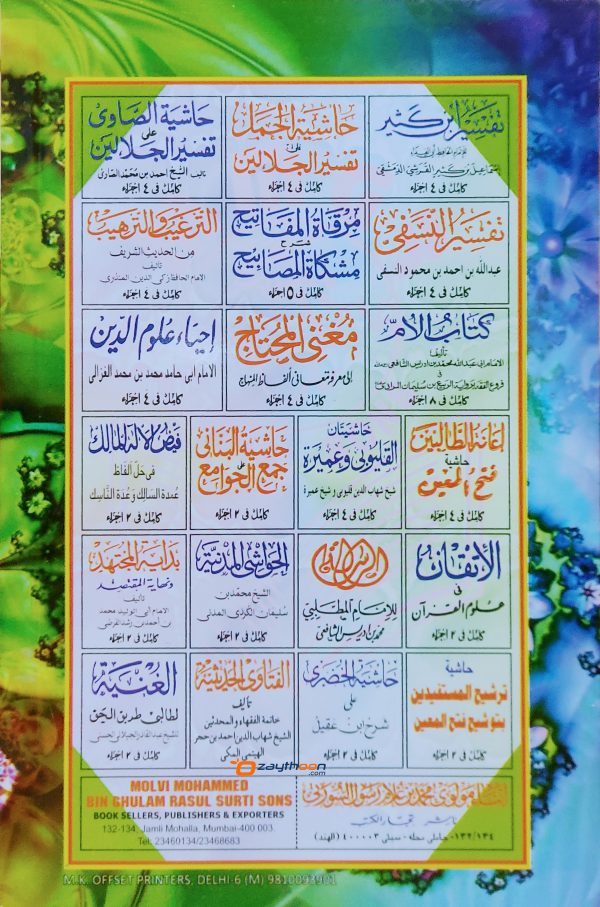 تفسير ابن كثير
للإمام الحافظ أبي الفداء
اسماعيل بن كثير القرشي الدمشقي
كامل في ٤ اجزاء
حاشية الجمل
على
تفسير الجلالين
كامل في ٤ اجزاء
حاشية الصاوى
على
تفسير الجلالين
تاليف الشيخ احمد بن محمد الصاوى
كامل في ٤ اجزاء
تفسير النسفى
عبدالله بن احمد بن محمود النسفى
كامل في ٤ اجزاء
مرقاة المفاتيح
شرح
مشكاة المصابيح
كامل في ٥ اجزاء
الترغيب والترهيب
من الحديث الشريف
تأليف
الامام الحافظ زكى الدين المنذرى
كامل في ٤ اجزاء
كتاب الأم
تأليف
الامام ابى عبدالله محمد بن ادريس الشافعى
فى
فروع الفقه برواية الربيع بن سليمان المرادى
كامل في ٨ اجزاء
مغنى المحتاج
إلى معرفة معانى ألفاظ المنهاج
كامل في ٤ اجزاء
إحياء علوم الدين
الامام ابى حامد محمد بن محمد الغزالى
كامل في ٤ اجزاء
إعانة الطالبين
حاشية
فتح المعين
كامل في ٤ اجزاء
حاشيتان
القليوبى وعميرة
شيخ شهاب الدين قليوبى و شيخ عميرة
كامل في ٤ اجزاء
حاشية البنانى
على
جمع الجوامع
كامل في ٢ اجزاء
فيض الإله المالك
فى حل الفاظ
عمدة السالك وعدة الناسك
كامل في ٢ اجزاء
الإتقان
فى
علوم القرآن
كامل في ٢ اجزاء
الرسالة
للإمام المطلبي
محمد بن ادريس الشافعى
الحواشى المدنية
الشيخ محمد بن
سليمان الكردى المدنى
كامل في ٢ اجزاء
بداية المجتهد
ونهاية المقتصد
تأليف
الامام أبى الوليد محمد
بن احمد بن رشد القرطبى
كامل في ٢ اجزاء
حاشية
ترشيح المستفيدين
بتوشيح فتح المعين
كامل في ٢ اجزاء
حاشية الخضرى
على
شرح ابن عقيل
كامل في ٢ اجزاء
الفتاوى الحديثية
تأليف
خاتمة الفقهاء والمحدثين
الشيخ شهاب الدين احمد بن حجر
الهيتمى المكى
الغنية
لطالبى طريق الحق
للشيخ عبدالقادر الجيلانى الحسنى
كامل في ٢ اجزاء
zaythoon
.com
MOLVI MOHAMMED
BIN GHULAM RASUL SURTI SONS
BOOK SELLERS, PUBLISHERS & EXPORTERS
132-134, Jamli Mohalla, Mumbai-400 003.
Tel: 23460134/23468683
مولوى محمد بن غلام رسول السورتى
ناشر تجار الكتب
١٣٢/١٣٤- جاملى محله - ممبئى ٤٠٠٠٠٣ (الهند)
M.K. OFFSET PRINTERS, DELHI-6 (M) 9810093901